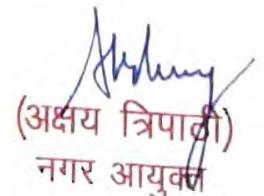 (अक्षय त्रिपाठी)
नगर आयुक्त